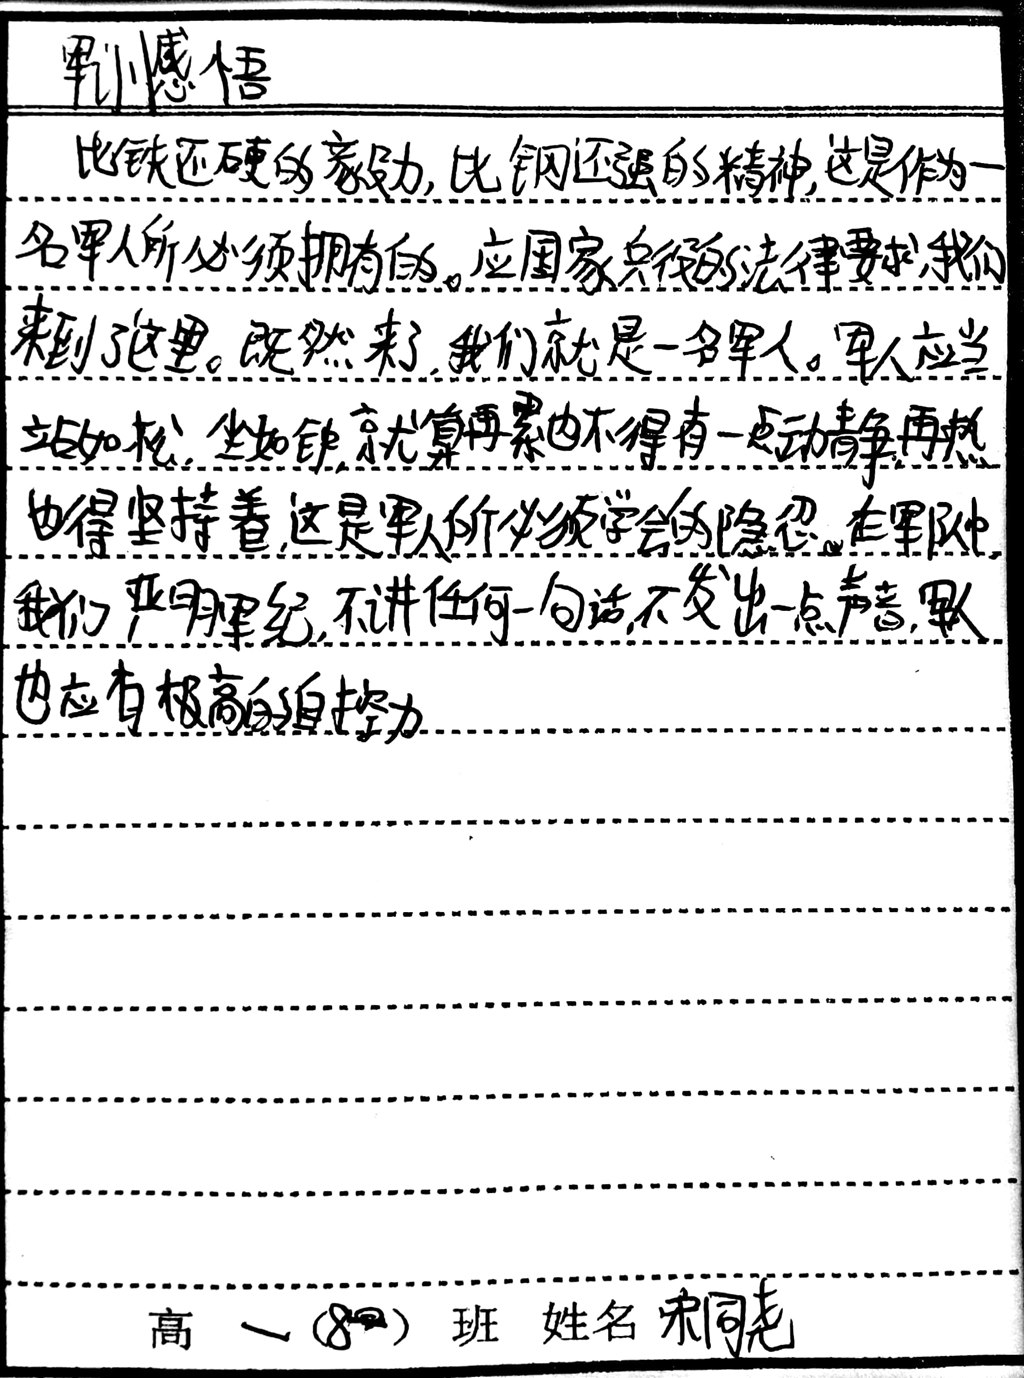 军训感悟
比铁还硬的毅力,比钢还强的精神,这是作为一
名军人所必须拥有的。应国家兵役的法律要求,我们
来到了这里。既然来了,我们就是一名军人。军人应当
站如松,坐如钟,就算再累也不得有一点动静,再热
也得坚持着,这是军人所必须学会的隐忍。在军队中,
我们严明军纪,不讲任何一句话,不发出一点声音,军人
也应有极高的自控力
高一(8)班 姓名 宋同尧